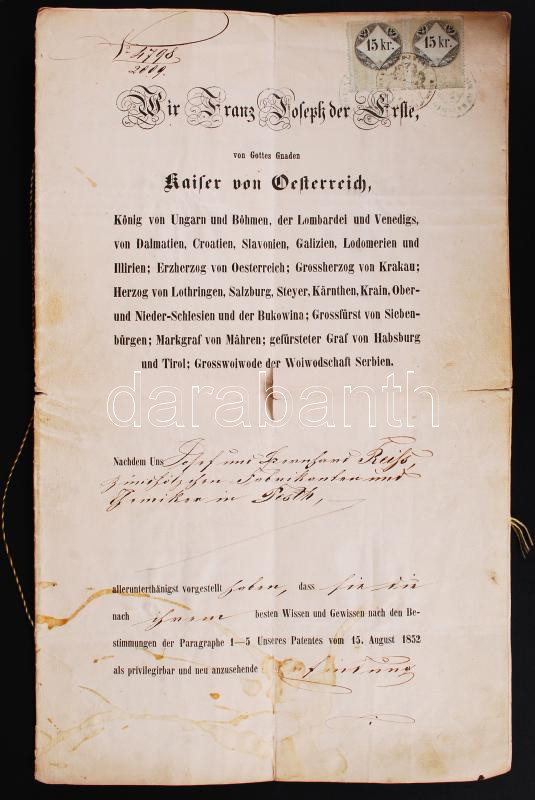 No 4798
2009.
15 kr. 15 kr.
Wir Franz Joseph der Erste,
von Gottes Gnaden
Kaiser von Oesterreich,
König von Ungarn und Böhmen, der Lombardei und Venedigs,
von Dalmatien, Croatien, Slavonien, Galizien, Lodomerien und
Illirien; Erzherzog von Oesterreich; Grossherzog von Krakau;
Herzog von Lothringen, Salzburg, Steyer, Kärnthen, Krain, Ober-
und Nieder-Schlesien und der Bukowina; Grossfürst von Sieben-
bürgen; Markgraf von Mähren; gefürsteter Graf von Habsburg
und Tirol; Grosswoiwode der Woiwodschaft Serbien.
darabanth
Nachdem Uns Josef und Bernhard Reiss,
Zündhölzchen Fabrikanten und
Chemiker in Pesth,
allerunterthänigst vorgestellt haben, dass sie die
nach ihrem besten Wissen und Gewissen nach den Be-
stimmungen der Paragraphe 1—5 Unseres Patentes vom 15. August 1852
als privilegirbar und neu anzusehende Erfindung